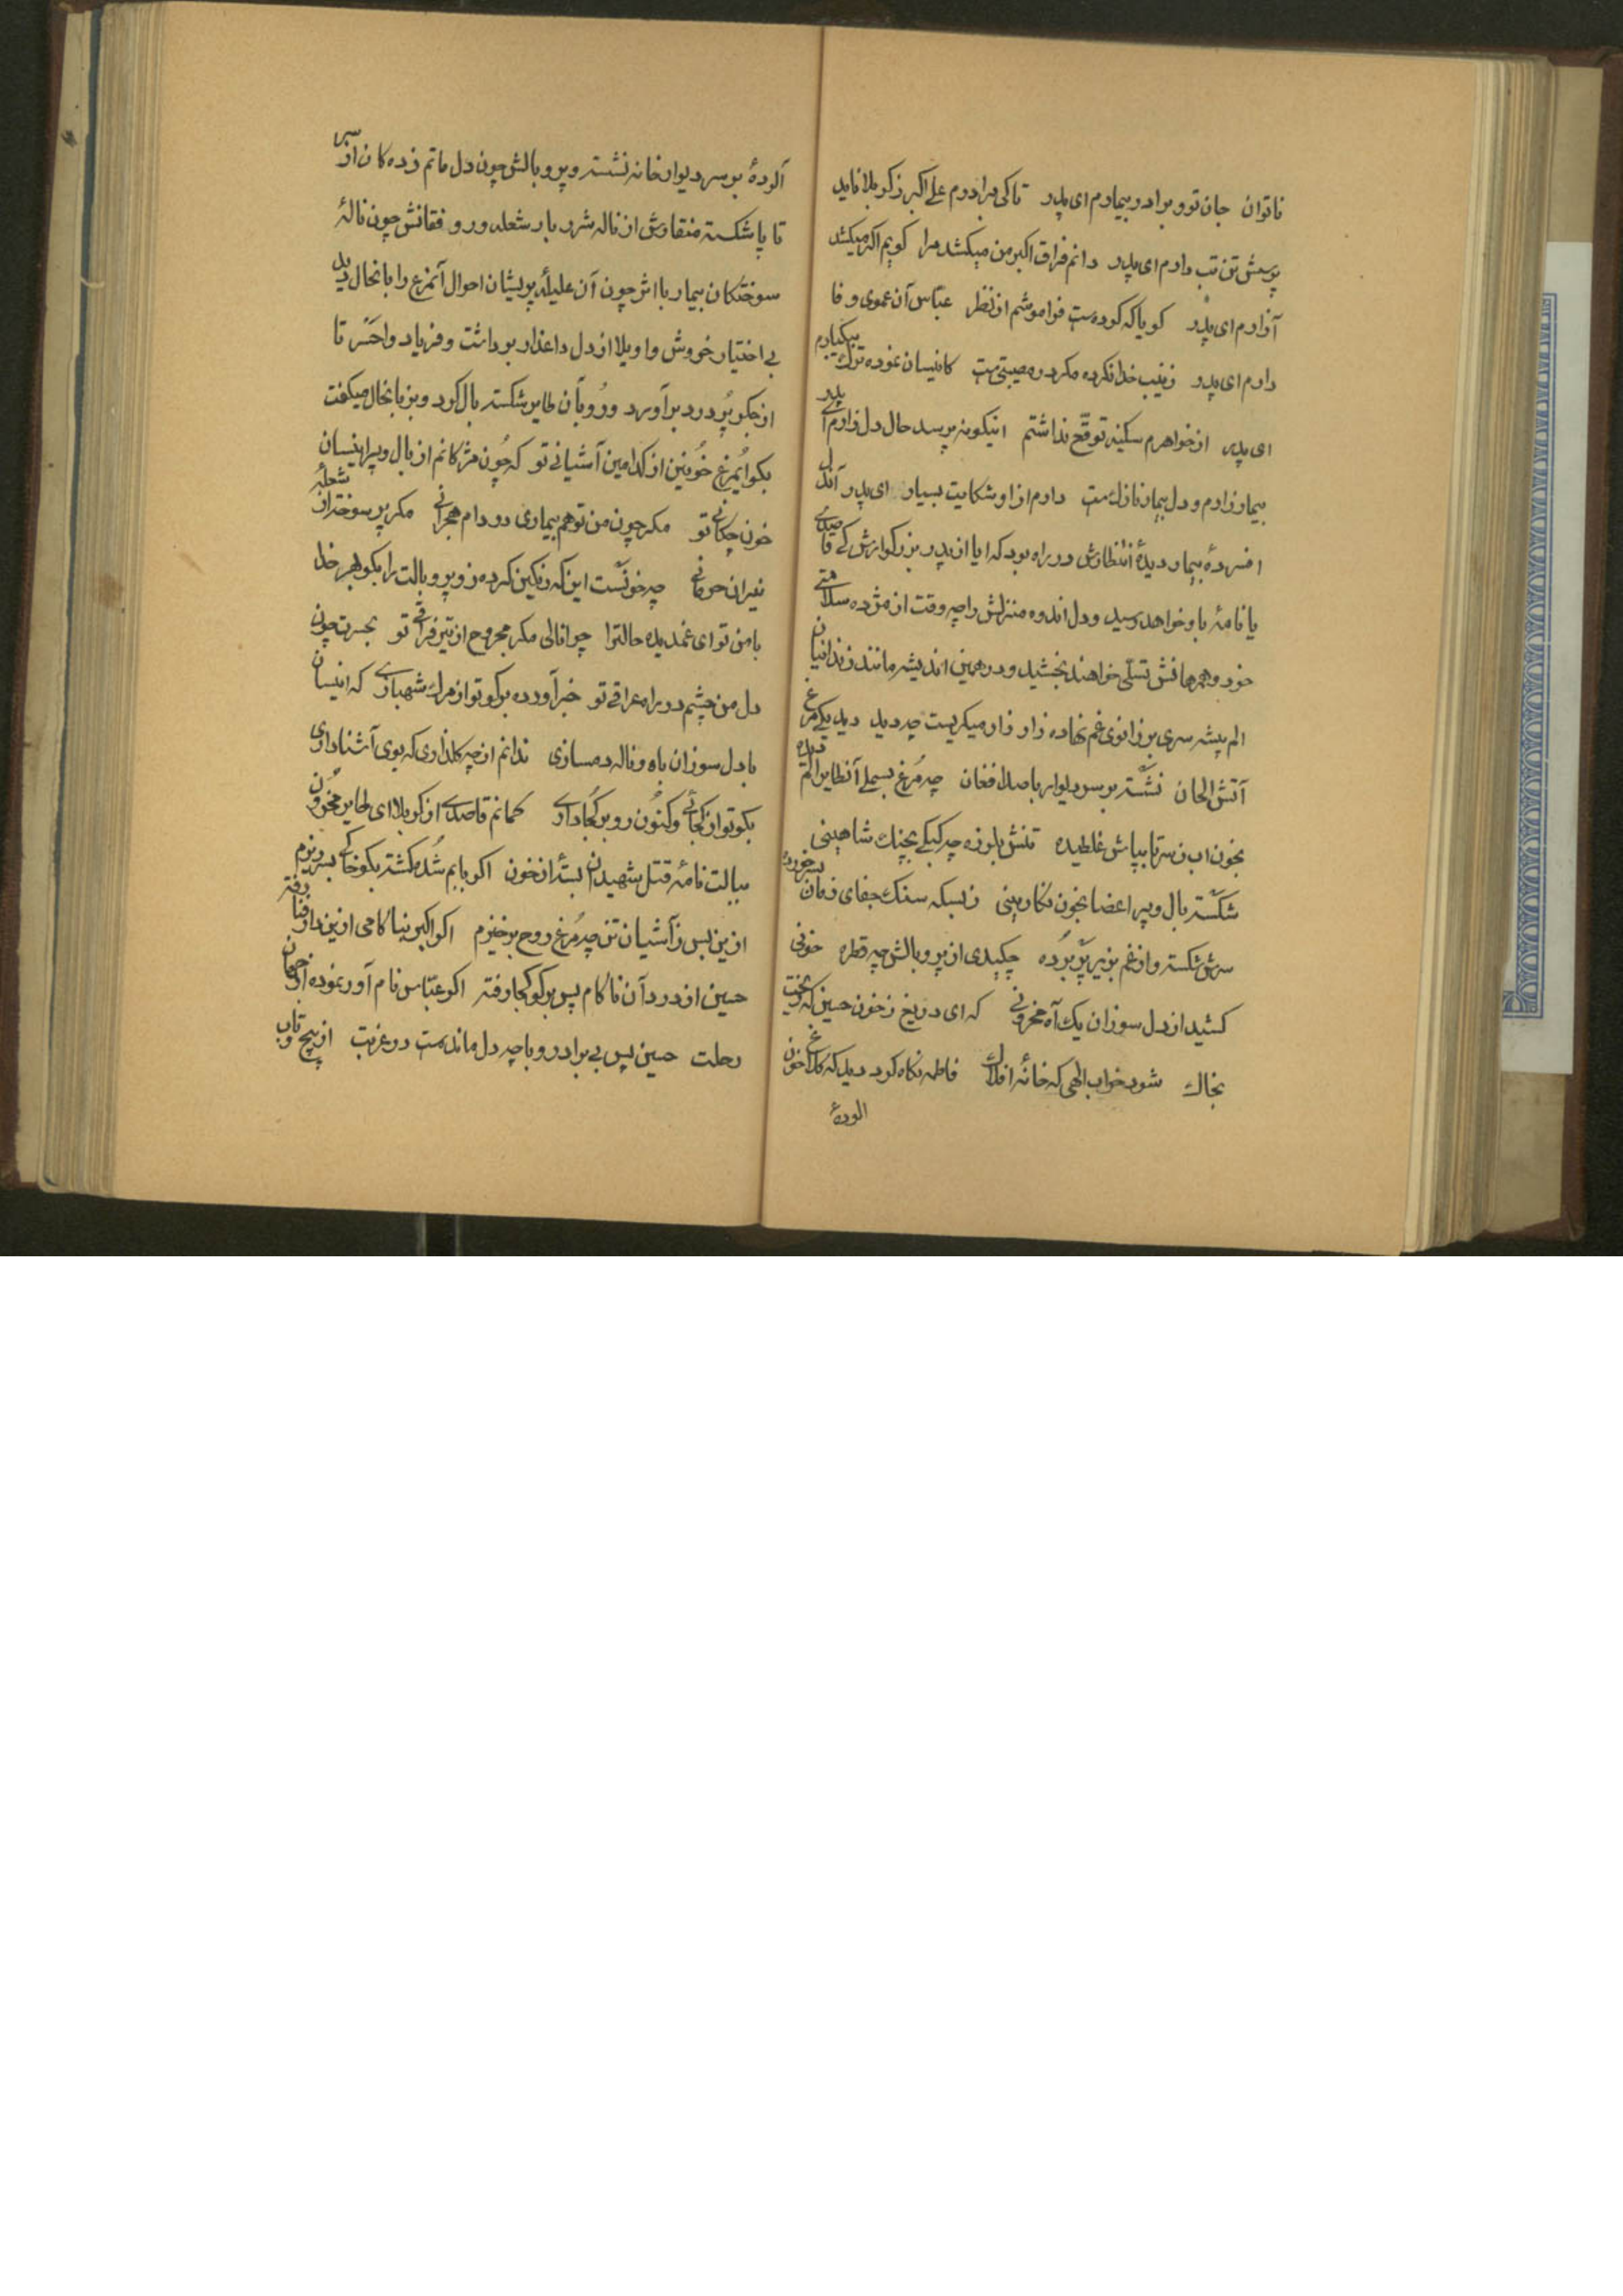 ناتوان جان تو و برادر بیمارم ای پدر تا کی برادرم علی اکبر ز کربلا ناید
پرسش تن تب دارم ای پدر دانم فراق اکبر من میکشد مرا کویم اکر میکشد
آزارم ای پدر کویا که کرده ست فراموشم از نظر عباس آن عموی وفا
دارم ای پدر زینب خدا نکرده مکر در مصیبتی ست کاینسان نموده ترک پیکبارم
ای پدر از خواهرم سکینه توقع نداشتم اینکونه پرسد حال دل زارم ای پدر
بیمار زارم و دل بیمار نازک ست دارم از او شکایت بسیار ای پدر آندل
افسردهٔ بیمار دیدهٔ انتظارش در راه بود که ایا از پدر بزرکوارش کی قاصدی
یا نامهٔ باو خواهد رسید و دل اندوه منزلش را چه وقت از مژده سلامتی
خود و همرهانش تسلی خواهند بخشید و در همین اندیشه مانند زندانیان
الم پیشه سری بر زانوی غم نهاده زار زار میکریست چه دید دید یکی مرغ
آتش الحان نشسته بر سر دیوار با صد افغان چه مرغ بسملی آنطایر الم دیده
بخون ز سر تا بپاش غلطیده تنش بلرزه چه کبکی بچنک شاهینی
شکسته بال و پر اعضا بخون نکارینی ز بسکه سنک جفای زمان بسر خورده
سرش شکسته و از غم بزیر پر برده چکیدی از پر و بالش چه قطره خونی
کشید از دل سوزان یک آه محزونی که ای دریغ ز خون حسین که ریخت
بخاک شود خراب الهی که خانهٔ افلاک فاطمه نکاه کرد دید که کلاغ خون
الودهٔ
آلودهٔ بر سر دیوار خانه نشسته و پر و بالش چون دل ماتم زده کان از سر
تا پا شکسته منقارش از ناله شرر بار شعله ور و فغانش چون نالهٔ
سوختکان بیمار با اثر چون آن علیلهٔ پریشان احوال آنمرغ را بانحال دید
بی اختیار خروش واویلا از دل داغدار برداشت و فریاد واحسرتا
از جکر پر درد برآورد و رو بآن طایر شکسته بال کرد و بزبانحال میکفت
بکو ایمرغ خونین از کدامین آشیانی تو که چون مژکانم از بال و پر اینسان
خون چکانی تو مکر چون من تو هم بیماری در دام هجرانی مکر پر سوخته از شعلهٔ
نیران حرمانی چه خونست این که رنکین کرده زو پر و بالت را بکو بهر خدا
با من تو ای غمدیده حالترا چرا نالی مکر مجروح از تیر فراقی تو بحسرت چون
دل من چشم در راه عراقی تو خبر آورده برکو تو از مرک شهبازی که اینسان
با دل سوزان باه و ناله دمسازی ندانم از چه کلذاری که بوی آشنا داری
بکو تو از کجائی و کنون رو بر کجا داری کمانم قاصدی از کربلا ای طایر محزون
ببالت نامهٔ قتل شهیدان بستهٔ از خون اکر بابم شد کشته بکو خاکی بسر ریزم
ازین پس ز آشیان تن چه مرغ روح برخیزم اکر اکبر بناکامی ازین دار فنا رفته
حسین از درد آن ناکام پس برکو کجا رفته اکر عباس نام آور نموده از جهان
رحلت حسین پس بی برادر و با چه دل ماندست در غربت از پیچ و تاب